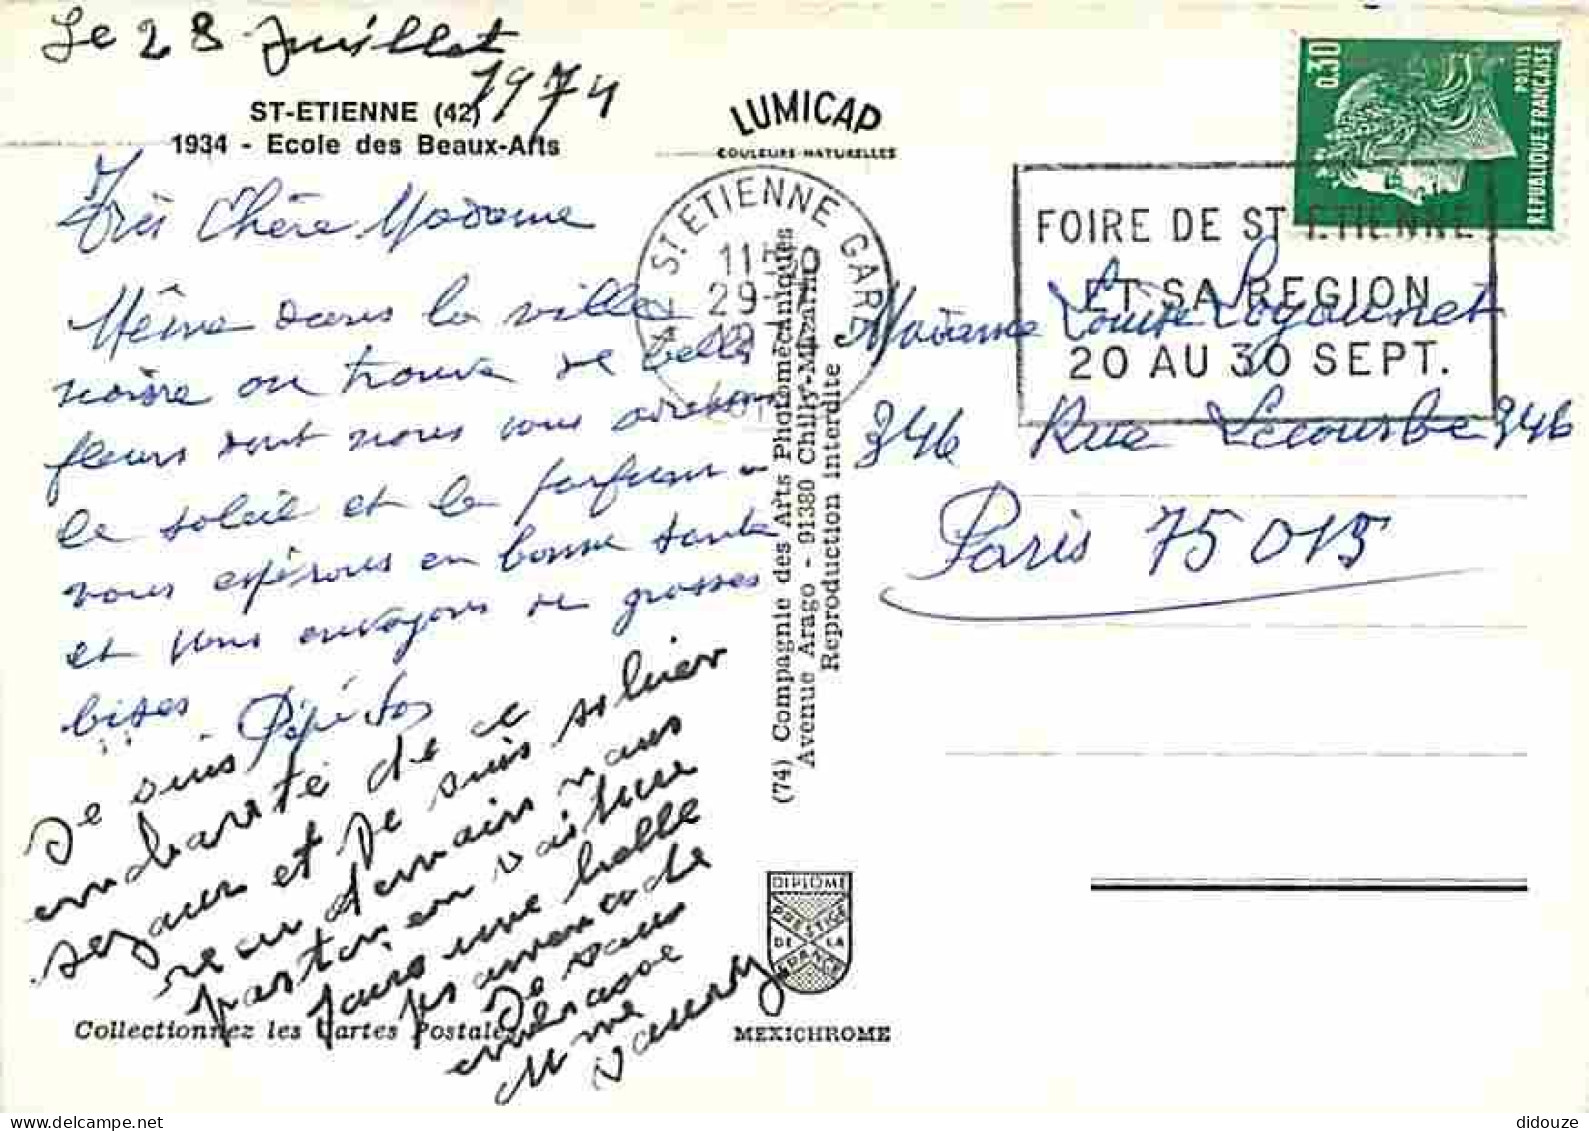 Le 28 Juillet
1974
ST-ETIENNE (42)
1934 - Ecole des Beaux-Arts
Très Chère Madame
Même dans la ville
noire on trouve de belles
fleurs dont nous vous adressons
le soleil et le parfum -
vous espérons en bonne santé
et vous envoyons de grosses
bises.
Je suis
enchanté de ce
sezour et je suis
demain vous
parton en voiture
fairs une belle
promenade
Je vous
embrasse
Mme
LUMICAP
COULEURS NATURELLES
ST ETIENNE GARE
29 - 7
(74) Compagnie des Arts Photomécaniques
Avenue Arago - 91380 Chilly-Mazarin
Reproduction interdite
DIPLOME
PRESTIGE
DE LA
FRANCE
MEXICHROME
Collectionnez les Cartes Postales
0,30
POSTES
REPUBLIQUE FRANCAISE
FOIRE DE ST ETIENNE
ET SA REGION
20 AU 30 SEPT.
Madame Louise
346 Rue Lecourbe 346
Paris 75015
didouze